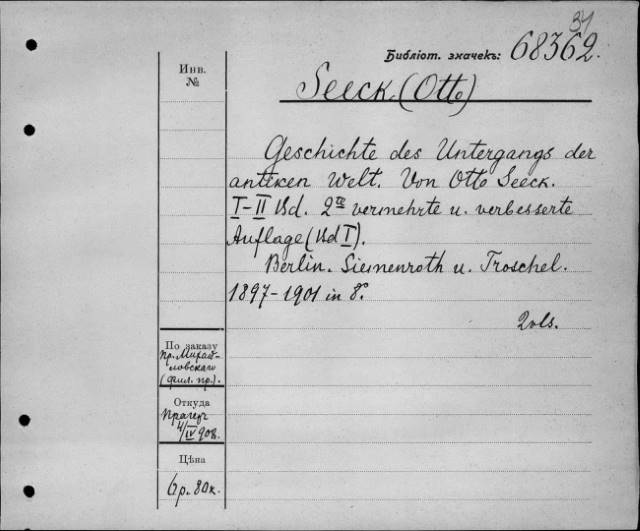 34
Библіот. значекъ: 68362.
Инв.
№
Seeck (Otto)
Geschichte des Untergangs der
antiken Welt. Von Otto Seeck.
I-II Bd. 2te vermehrte u. verbesserte
Auflage (Bd I).
Berlin. Siemenroth u. Troschel.
1897-1901 in 8°.
2 vls.
По заказу
пр. Михай-
ловскаго
(фил. пр.).
Откуда
Прагеръ
4/IV 908.
Цѣна
6 р. 80 к.